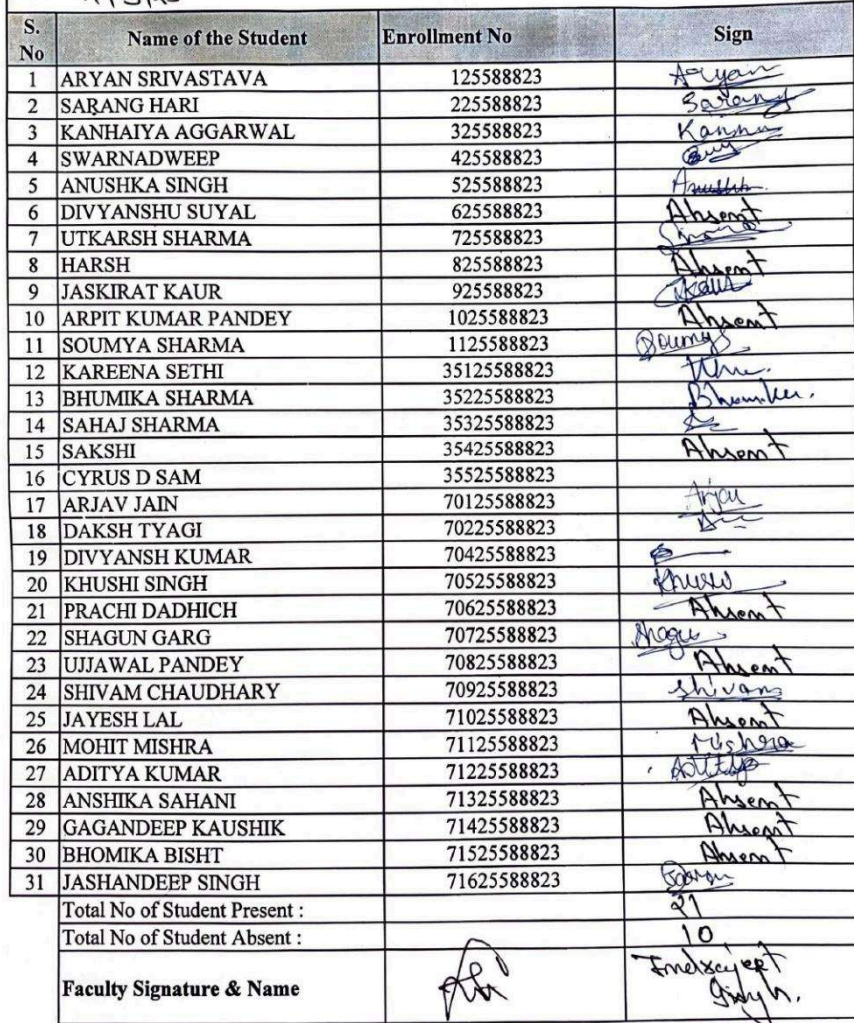 S. No Name of the Student Enrollment No Sign
1 ARYAN SRIVASTAVA 125588823 Aryan
2 SARANG HARI 225588823 Sarang
3 KANHAIYA AGGARWAL 325588823 Kannu
4 SWARNADWEEP 425588823
5 ANUSHKA SINGH 525588823
6 DIVYANSHU SUYAL 625588823 Absent
7 UTKARSH SHARMA 725588823
8 HARSH 825588823 Absent
9 JASKIRAT KAUR 925588823
10 ARPIT KUMAR PANDEY 1025588823 Absent
11 SOUMYA SHARMA 1125588823
12 KAREENA SETHI 35125588823
13 BHUMIKA SHARMA 35225588823
14 SAHAJ SHARMA 35325588823
15 SAKSHI 35425588823 Absent
16 CYRUS D SAM 35525588823
17 ARJAV JAIN 70125588823
18 DAKSH TYAGI 70225588823
19 DIVYANSH KUMAR 70425588823
20 KHUSHI SINGH 70525588823
21 PRACHI DADHICH 70625588823 Absent
22 SHAGUN GARG 70725588823
23 UJJAWAL PANDEY 70825588823 Absent
24 SHIVAM CHAUDHARY 70925588823 Shivam
25 JAYESH LAL 71025588823 Absent
26 MOHIT MISHRA 71125588823 Mishra
27 ADITYA KUMAR 71225588823
28 ANSHIKA SAHANI 71325588823 Absent
29 GAGANDEEP KAUSHIK 71425588823 Absent
30 BHOMIKA BISHT 71525588823 Absent
31 JASHANDEEP SINGH 71625588823
Total No of Student Present : 21
Total No of Student Absent : 10
Faculty Signature & Name